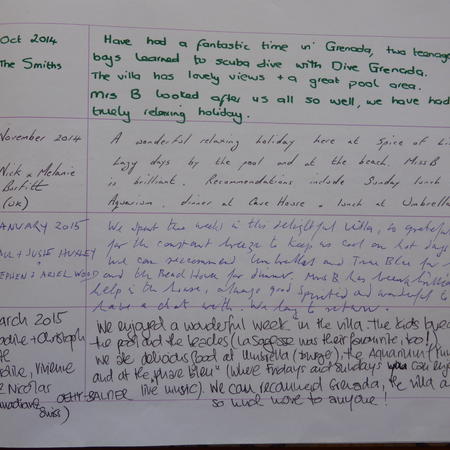 Oct 2014
The Smiths
Have had a fantastic time in Grenada, two teenage
boys learned to scuba dive with Dive Grenada.
The villa has lovely views + a great pool area.
Mrs B looked after us all so well, we have had
truely relaxing holiday.
November 2014
Nick & Melanie
(UK)
A wonderful relaxing holiday here at Spice of
Lazy days by the pool and at the beach. Miss B
is brilliant. Recommendations include Sunday lunch
Aquarium, dinner at Cave House + lunch at Umbrella
ANUARY 2015
We spent two weeks in this delightful villa, so grateful
for the constant breeze to keep us cool on hot days
We can recommend Umbrellas and True Blue for
and the Beach House for dinner. Mrs B has been brilliant
help in the house, always good spirited and wonderful to
have a chat with. We long to return.
March 2015
We enjoyed a wonderful week in the villa. The kids
the pool and the beaches (La Sagesse was their favourite, too!)
We ate delicious food at Umbrella (burger), the Aquarium
and at the "phare bleu" (where Fridays and Sundays you can
live music). We can recommend Grenada, the villa
so much more to anyone!